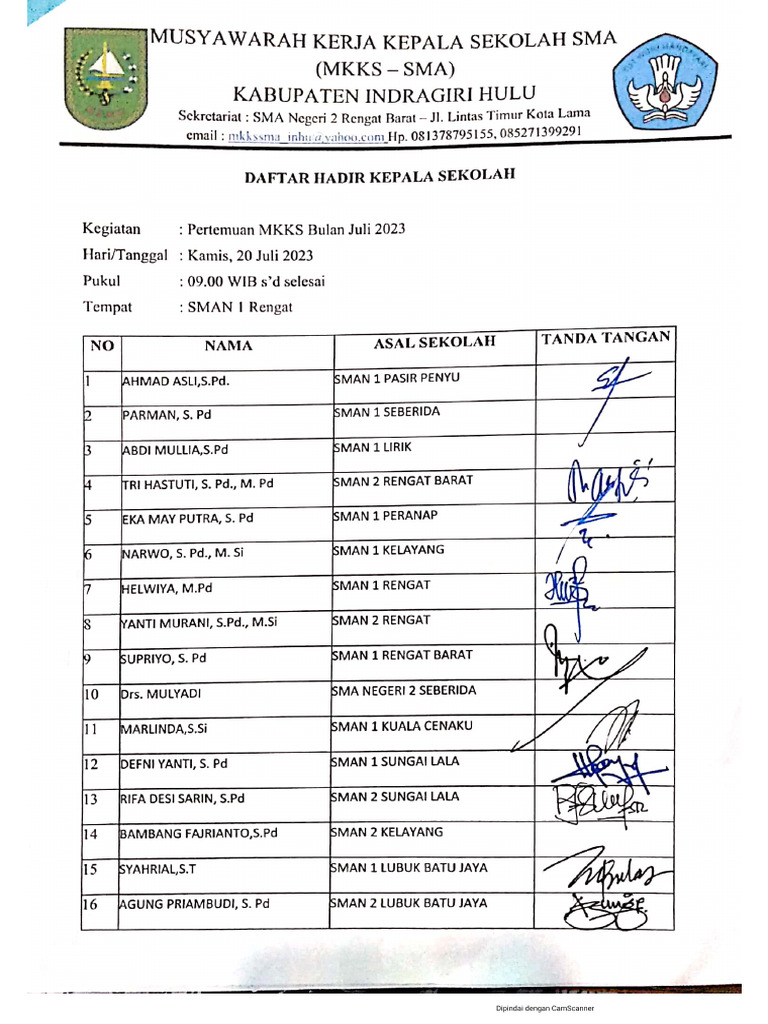 MUSYAWARAH KERJA KEPALA SEKOLAH SMA
(MKKS – SMA)
KABUPATEN INDRAGIRI HULU
Sekretariat : SMA Negeri 2 Rengat Barat – Jl. Lintas Timur Kota Lama
email : mkkssma_inhu@yahoo.com Hp. 081378795155, 085271399291
DAFTAR HADIR KEPALA SEKOLAH
Kegiatan : Pertemuan MKKS Bulan Juli 2023
Hari/Tanggal : Kamis, 20 Juli 2023
Pukul : 09.00 WIB s'd selesai
Tempat : SMAN 1 Rengat
NO NAMA ASAL SEKOLAH TANDA TANGAN
1 AHMAD ASLI,S.Pd. SMAN 1 PASIR PENYU
2 PARMAN, S. Pd SMAN 1 SEBERIDA
3 ABDI MULLIA,S.Pd SMAN 1 LIRIK
4 TRI HASTUTI, S. Pd., M. Pd SMAN 2 RENGAT BARAT
5 EKA MAY PUTRA, S. Pd SMAN 1 PERANAP
6 NARWO, S. Pd., M. Si SMAN 1 KELAYANG
7 HELWIYA, M.Pd SMAN 1 RENGAT
8 YANTI MURANI, S.Pd., M.Si SMAN 2 RENGAT
9 SUPRIYO, S. Pd SMAN 1 RENGAT BARAT
10 Drs. MULYADI SMA NEGERI 2 SEBERIDA
11 MARLINDA,S.Si SMAN 1 KUALA CENAKU
12 DEFNI YANTI, S. Pd SMAN 1 SUNGAI LALA
13 RIFA DESI SARIN, S.Pd SMAN 2 SUNGAI LALA
14 BAMBANG FAJRIANTO,S.Pd SMAN 2 KELAYANG
15 SYAHRIAL,S.T SMAN 1 LUBUK BATU JAYA
16 AGUNG PRIAMBUDI, S. Pd SMAN 2 LUBUK BATU JAYA
Dipindai dengan CamScanner